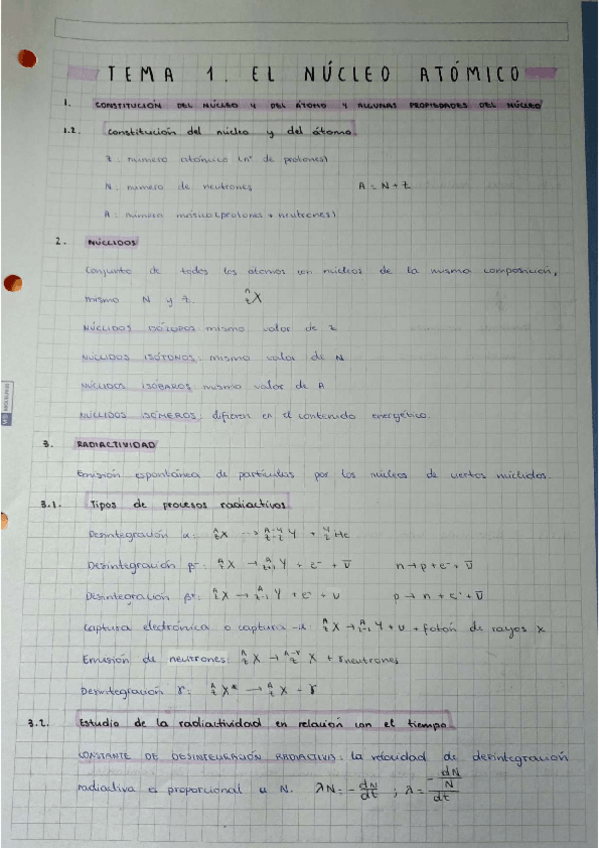 TEMA 1. EL NÚCLEO ATÓMICO
1. CONSTITUCIÓN DEL NÚCLEO Y DEL ÁTOMO Y ALGUNAS PROPIEDADES DEL NÚCLEO
1.2. Constitución del núcleo y del átomo
Z: número atómico (nº de protones)
N: número de neutrones A = N + Z
A: número másico (protones + neutrones)
2. NÚCLIDOS
Conjunto de todos los átomos con núcleos de la misma composición,
mismo N y Z. ᴬ_Z X
NÚCLIDOS ISÓTOPOS mismo valor de Z
NÚCLIDOS ISÓTONOS: mismo valor de N
NÚCLIDOS ISÓBAROS mismo valor de A
NÚCLIDOS ISÓMEROS: difieren en el contenido energético.
3. RADIACTIVIDAD
Emisión espontánea de partículas por los núcleos de ciertos núclidos.
3.1. Tipos de procesos radiactivos
Desintegración α: ᴬ_Z X → ᴬ⁻⁴_Z-2 Y + ⁴_2 He
Desintegración β⁻: ᴬ_Z X → ᴬ_Z+1 Y + e⁻ + ν̅ n → p + e⁻ + ν̅
Desintegración β⁺: ᴬ_Z X → ᴬ_Z-1 Y + e⁺ + ν p → n + e⁺ + ν̅
Captura electrónica o captura -k: ᴬ_Z X → ᴬ_Z-1 Y + ν + fotón de rayos X
Emisión de neutrones: ᴬ_Z X → ᴬ⁻ʳ_Z X + r neutrones
Desintegración γ: ᴬ_Z X* → ᴬ_Z X - γ
3.2. Estudio de la radiactividad en relación con el tiempo
CONSTANTE DE DESINTEGRACIÓN RADIACTIVA: la velocidad de desintegración
radiactiva es proporcional a N. λN = - dN/dt ; λ = (- dN/N)/dt